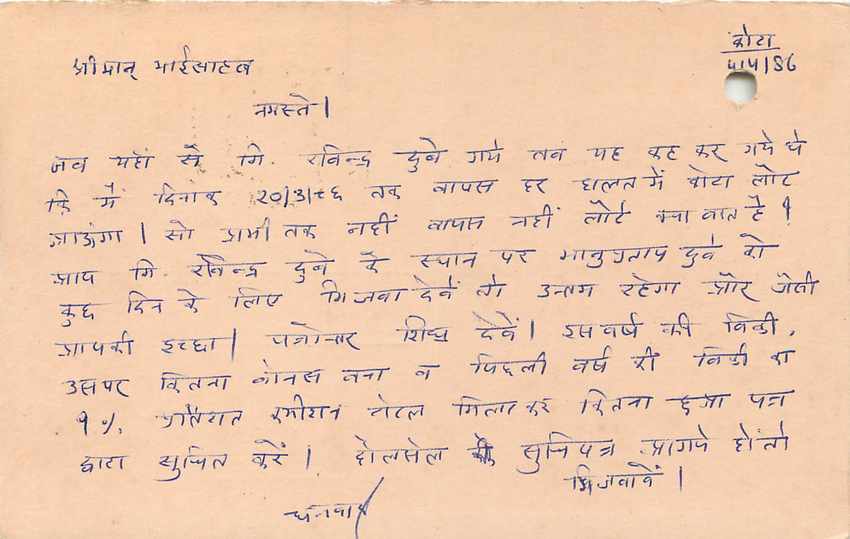 कोटा
4/4/86
श्रीमान् भाईसाहब
नमस्ते।
जब यहाँ से मि. रविन्द्र दुबे गये तब यह कह कर गये थे
कि मैं दिनांक 20/3/86 तक वापस हर हालत में कोटा लौट
जाऊंगा। सो अभी तक नहीं वापस नहीं लौटे क्या बात है?
आप मि. रविन्द्र दुबे के स्थान पर भानुप्रताप दुबे को
कुछ दिन के लिए भिजवा देवें तो उत्तम रहेगा और जैसी
आपकी इच्छा। पत्रोत्तर शिघ्र देवें। इस वर्ष की बिक्री,
उसपर कितना बोनस बना व पिछली वर्ष की बिक्री का
1%, प्रतिशत कमीशन टोटल मिलाकर कितना हुआ पत्र
द्वारा सुचित करें। होलसेल के सुचिपत्र आगये हों तो
भिजवावें।
धन्यवाद